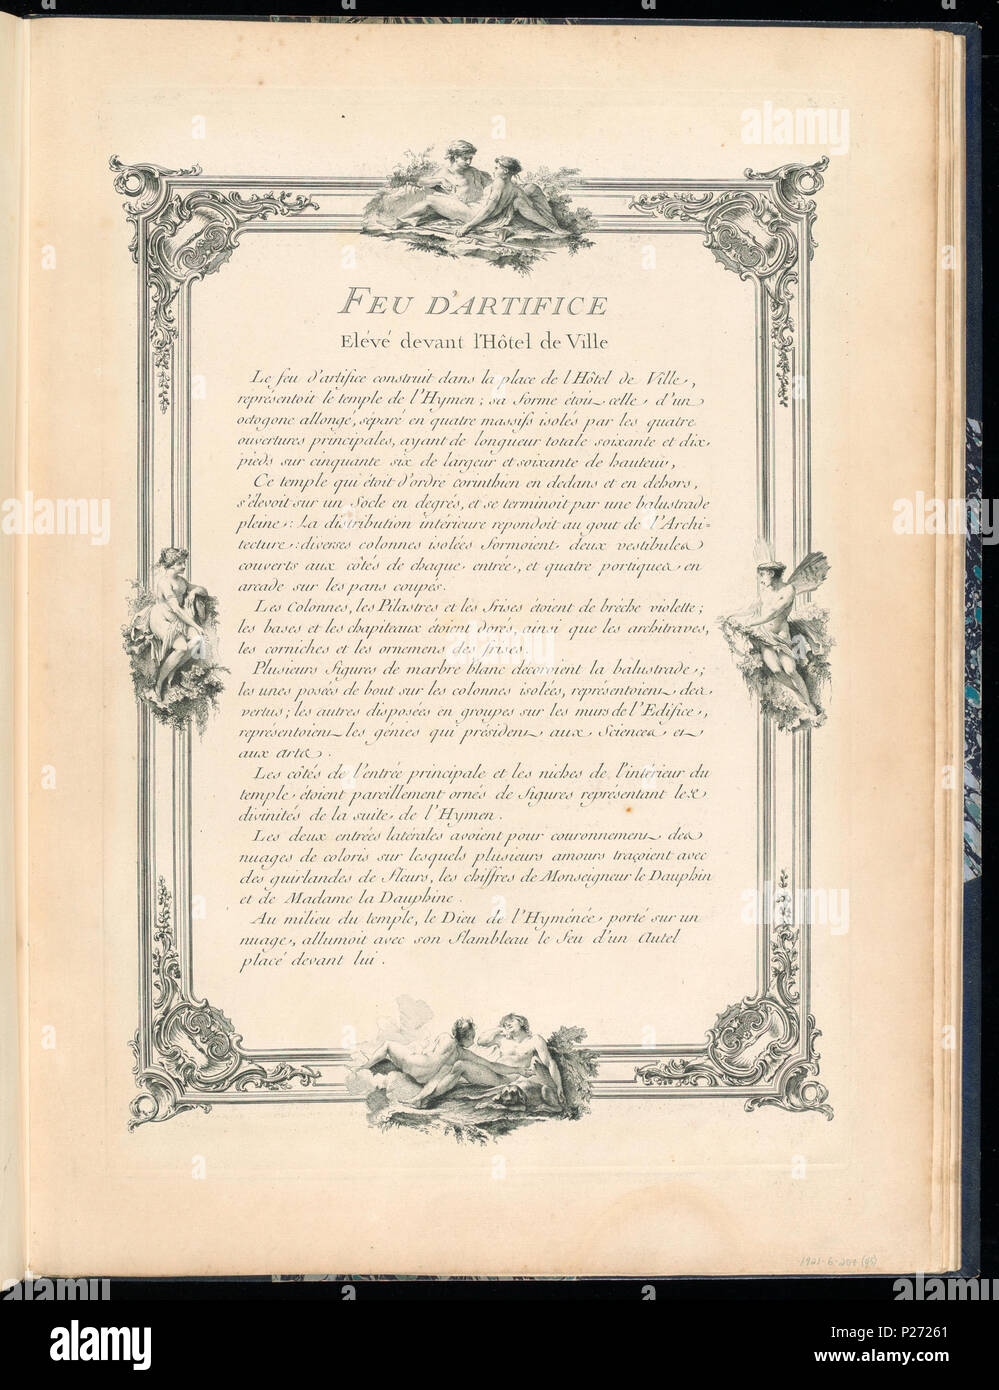 FEU D'ARTIFICE
Elévé devant l'Hôtel de Ville
Le feu d'artifice construit dans la place de l'Hôtel de Ville,
représentoit le temple de l'Hymen; sa forme étoit celle d'un
octogone allongé, séparé en quatre massifs isolés par les quatre
ouvertures principales, ayant de longueur totale soixante et dix
pieds sur cinquante six de largeur et soixante de hauteur,
Ce temple qui étoit d'ordre corinthien en dedans et en dehors,
s'élevoit sur un Socle en degrés, et se terminoit par une balustrade
pleine: La distribution intérieure repondoit au gout de l'Archi=
tecture: diverses colonnes isolées formoient deux vestibules
couverts aux côtés de chaque entrée, et quatre portiques en
arcade sur les pans coupés.
Les Colonnes, les Pilastres et les frises étoient de brèche violette;
les bases et les chapiteaux étoient dorés, ainsi que les architraves,
les corniches et les ornemens des frises.
Plusieurs figures de marbre blanc décoroient la balustrade;
les unes posées de bout sur les colonnes isolées, représentoient des
vertus; les autres disposées en groupes sur les murs de l'Edifice,
représentoient les génies qui président aux Sciences et
aux arts.
Les côtés de l'entrée principale et les niches de l'intérieur du
temple étoient pareillement ornés de figures représentant les
divinités de la suite de l'Hymen.
Les deux entrées latérales avoient pour couronnement des
nuages de coloris sur lesquels plusieurs amours traçoient avec
des guirlandes de fleurs, les chiffres de Monseigneur le Dauphin
et de Madame la Dauphine.
Au milieu du temple, le Dieu de l'Hyménée porté sur un
nuage, allumoit avec son flambleau le feu d'un Autel
placé devant lui.
1921-6-204 (95)
alamy
alamy
alamy
alamy
a
alamy
Image ID: P27261
www.alamy.com